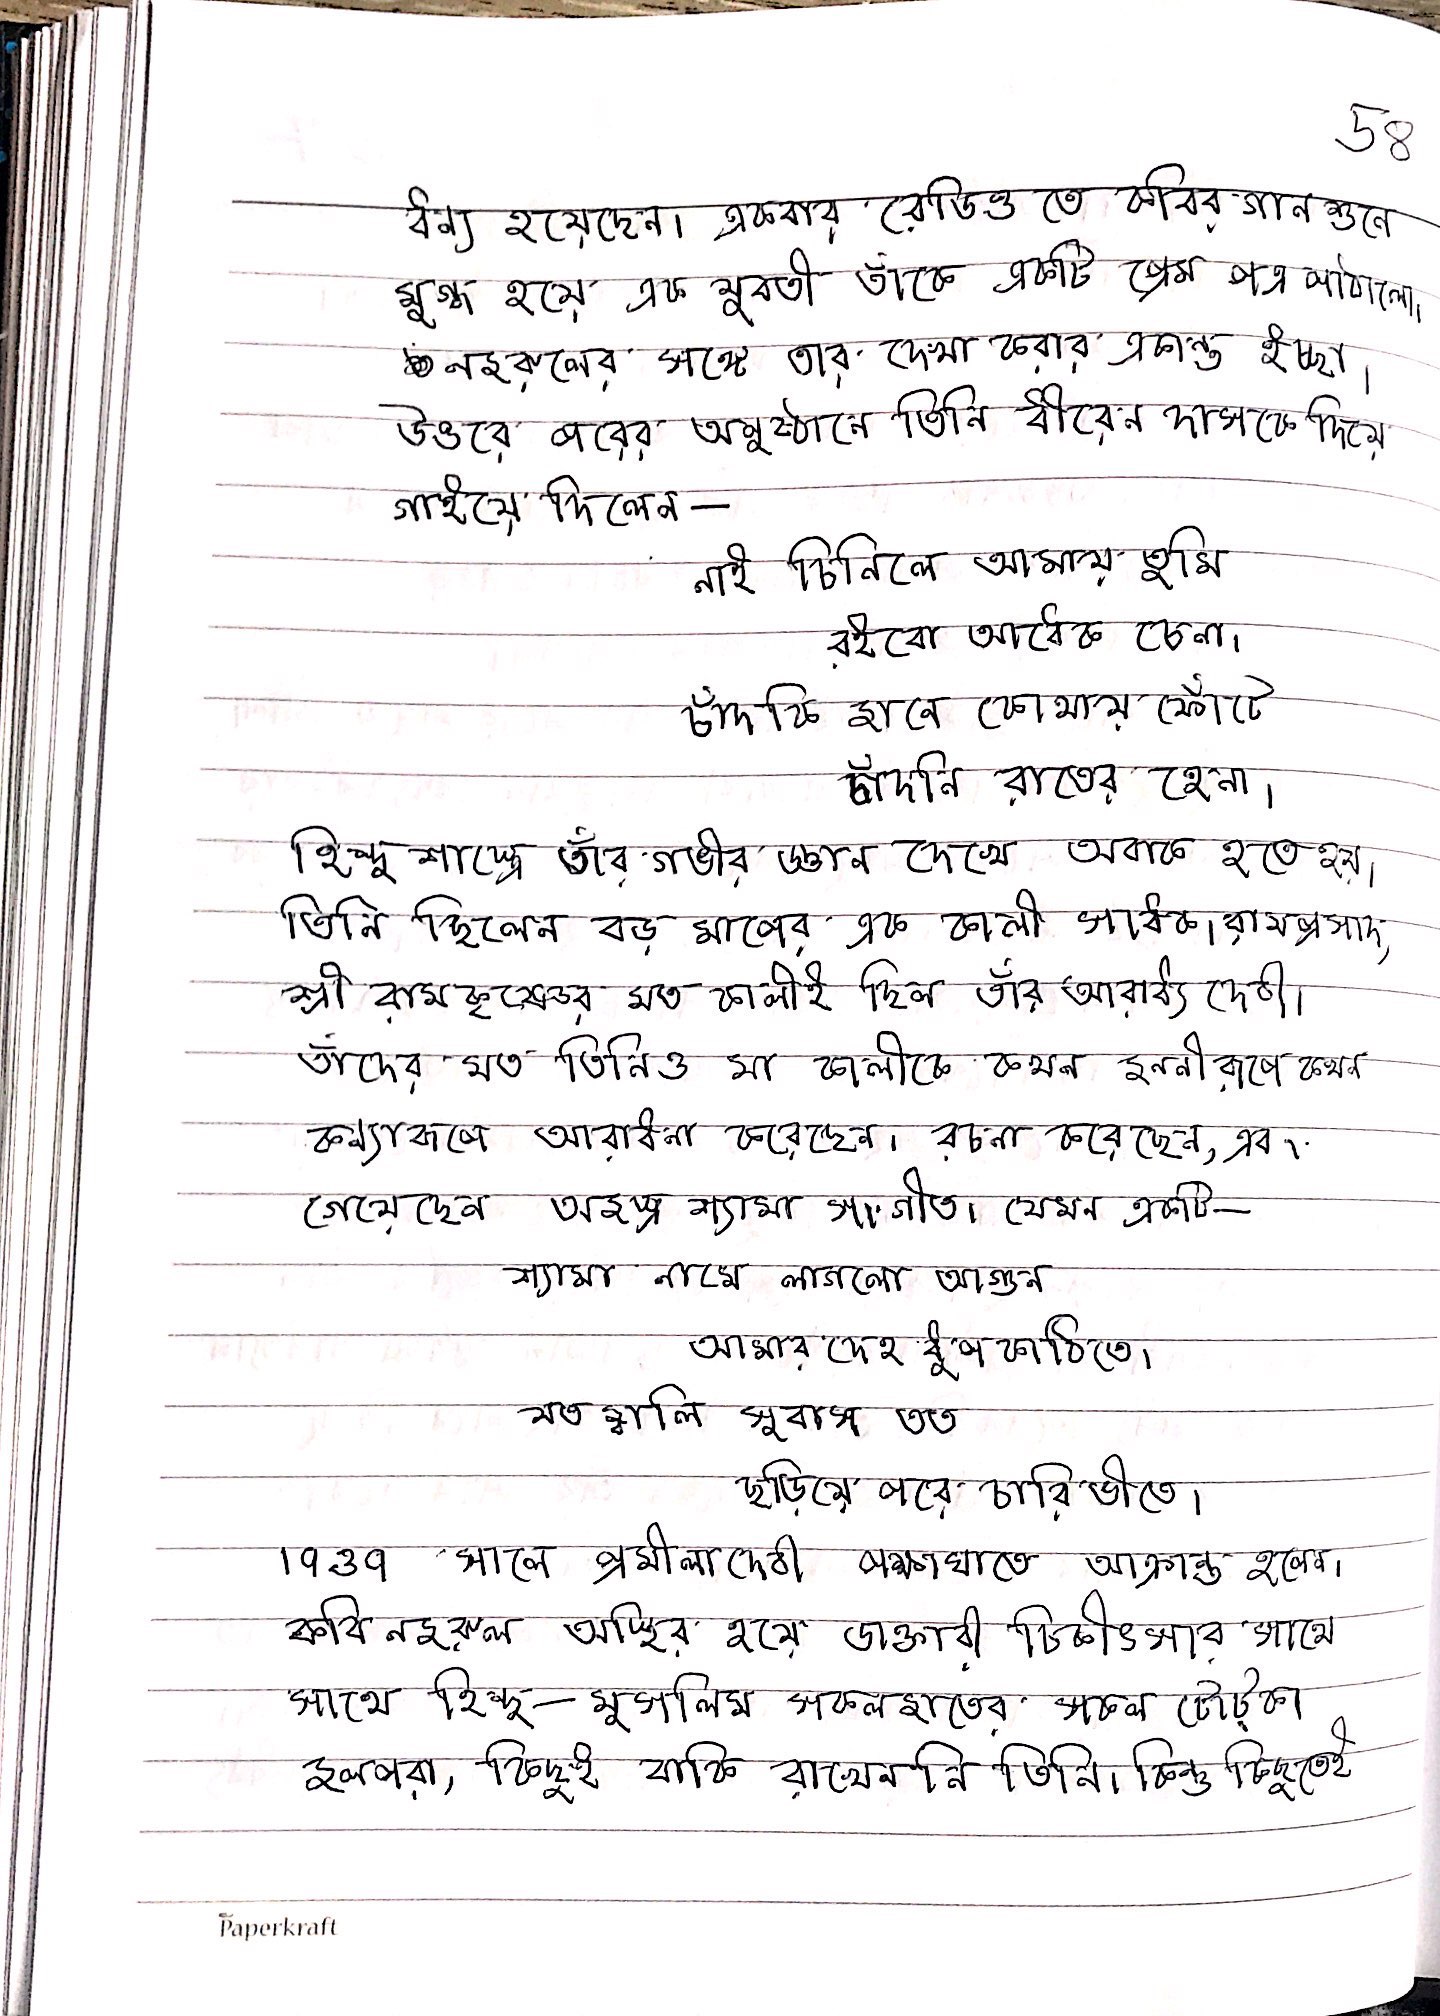 58
ধন্য হয়েছেন। একবার রেডিও তে কবির গান শুনে
মুগ্ধ হয়ে এক যুবতী তাঁকে একটি প্রেম পত্র পাঠালো।
নজরুলের সঙ্গে তার দেখা করার একান্ত ইচ্ছা।
উত্তরে পরের অনুষ্ঠানে তিনি ধীরেন দাসকে দিয়ে
গাইয়ে দিলেন—
নাই চিনিলে আমায় তুমি
রইবো আধেক চেনা।
চাঁদকি জানে কোথায় ফোঁটে
চাঁদনি রাতের হেনা।
হিন্দু শাস্ত্রে তাঁর গভীর জ্ঞান দেখে অবাক হতে হয়।
তিনি ছিলেন বড় মাপের এক কালী সাধক। রামপ্রসাদ,
শ্রী রামকৃষ্ণের মত কালীই ছিল তাঁর আরাধ্য দেবী।
তাঁদের মত তিনিও মা কালীকে কখন জননীরূপে কখন
কন্যারূপে আরাধনা করেছেন। রচনা করেছেন, এবং
গেয়েছেন অজস্র শ্যামা সংগীত। যেমন একটি—
শ্যামা নামে লাগলো আগুন
আমার দেহ ধুপ কাঠিতে।
যত জ্বালি সুবাস তত
ছড়িয়ে পরে চারি ভীতে।
১৯৩৯ সালে প্রমীলাদেবী পক্ষাঘাতে আক্রান্ত হলেন।
কবি নজরুল অস্থির হয়ে ডাক্তারী চিকীৎসার সাথে
সাথে হিন্দু—মুসলিম সকলজাতের সকল টোট্কা
জলপরা, কিছুই বাকি রাখেন নি তিনি। কিন্তু কিছুতেই
Paperkraft